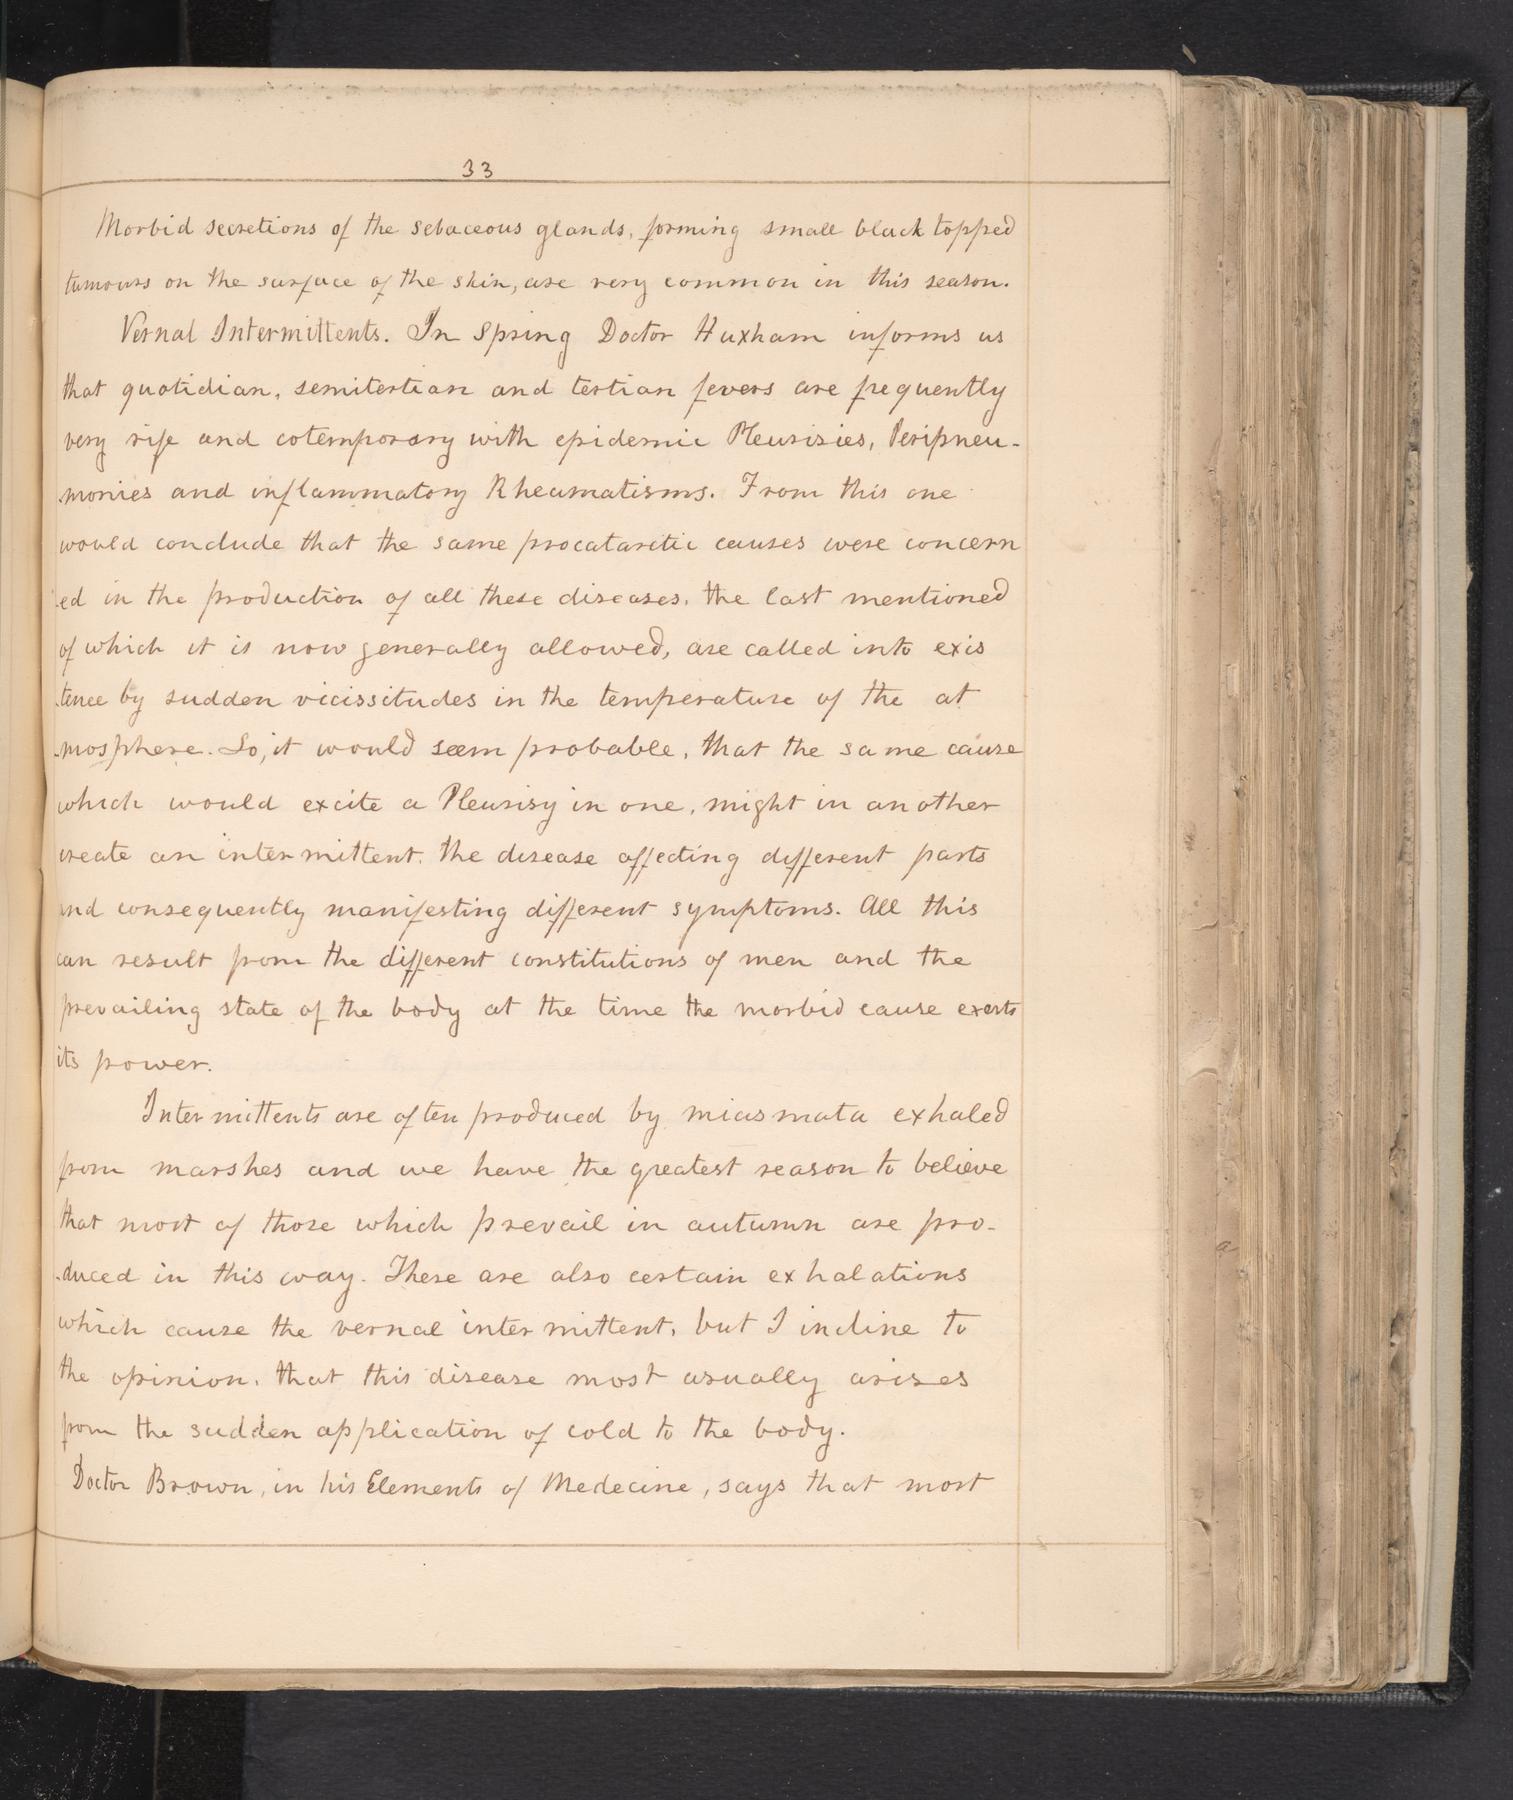 33
Morbid secretions of the sebaceous glands, forming small black topped
tumours on the surface of the skin, are very common in this season.
Vernal Intermittents. In Spring Doctor Huxham informs us
that quotidian, semitertian and tertian fevers are frequently
very rife and cotemporary with epidemic Pleurisies, Peripneu-
monies and inflammatory Rheumatisms. From this one
would conclude that the same procatarctic causes were concern
ed in the production of all these diseases, the last mentioned
of which it is now generally allowed, are called into exis
tence by sudden vicissitudes in the temperature of the at
mosphere. So, it would seem probable, that the same cause
which would excite a Pleurisy in one, might in another
create an intermittent, the disease affecting different parts
and consequently manifesting different symptoms. All this
can result from the different constitutions of men and the
prevailing state of the body at the time the morbid cause exerts
its power.
Intermittents are often produced by miasmata exhaled
from marshes and we have the greatest reason to believe
that most of those which prevail in autumn are pro-
duced in this way. There are also certain exhalations
which cause the vernal intermittent, but I incline to
the opinion, that this disease most usually arises
from the sudden application of cold to the body.
Doctor Brown, in his Elements of Medecine, says that most